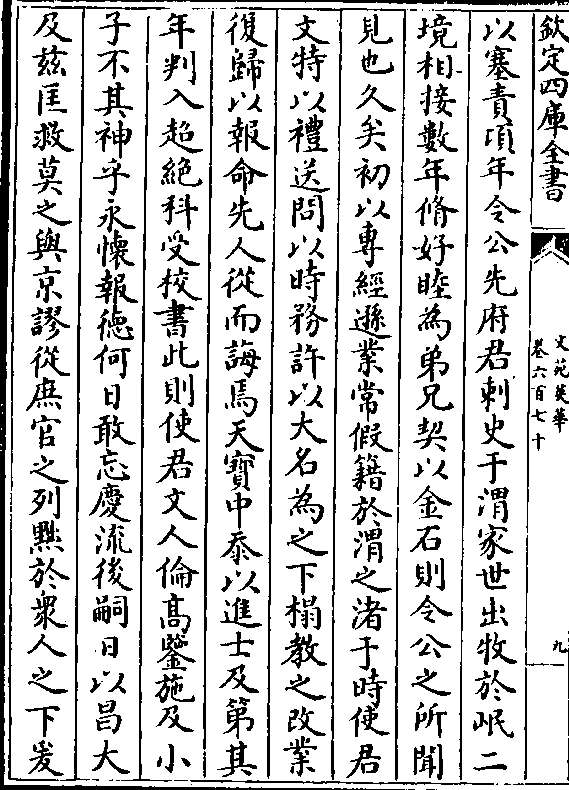 欽定四庫全書
文苑英華
卷六百七十
九
以塞責頃年令公先府君刺史于渭家世出牧於岷二
境相接數年脩好睦為弟兄契以金石則令公之所聞
見也久矣初以專經遜業常假籍於渭之渚于時使君
文特以禮送問以時務許以大名為之下榻教之改業
復歸以報命先人從而誨焉天寶中忝以進士及第其
年判入超絶科受校書此則使君文人倫高鑒施及小
子不其神乎永懷報德何日敢忘慶流後嗣日以昌大
及兹匡救莫之與京謬從庶官之列黜於衆人之下爰